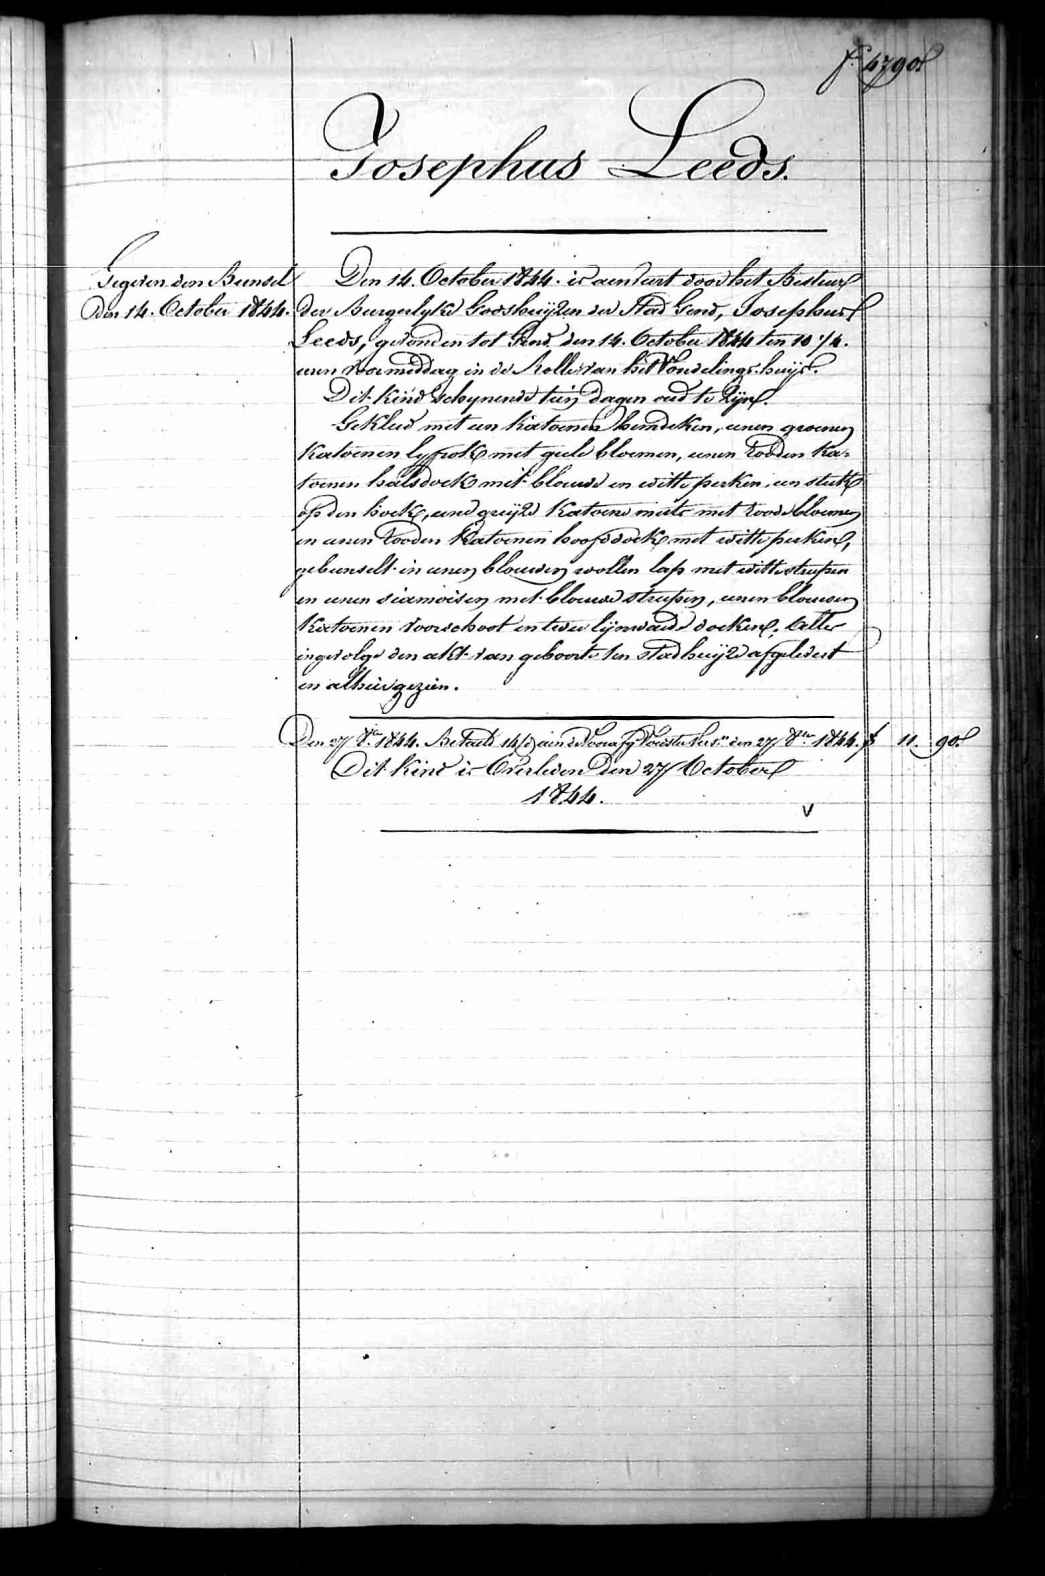 fo 479.
Josephus Leeds.
Gegeven den Bunsel
Den 14. October 1844.
Den 14. October 1844. is aenveert door het Bestuer
der Burgerlyke Godshuijzen der Stad Gend, Josephus
Leeds, gevonden tot Gend den 14. October 1844 ten 10 1/4.
uren voormiddag in de Rolle van het Vondelingshuijs.
Dit kind schynende tien dagen oud te zijn.
Gekleed met een katoenen hemdeken, eenen groenen
katoenen lyfrok met geele bloemen, eenen rooden ka-
toenen halsdoek met blouwe en witte perken, een stuk
op den hoek, eene grijze katoene muts met roode bloemen
en eenen rooden katoenen hoofddoek met witte perken,
gebunselt in eenen blouwen wollen lap met witte streepen
en eenen siamoisen met blouwe streepen, eenen blouwen
katoenen voorschoot en twee lijnwaede doeken. Alles
ingevolge den akt van geboorte ten stadhuijze afgelevert
en alhier gezien.
Den 27 8ber 1844. Betaelt 14/d aen de den 27 8ber 1844. f 11. 90.
Dit Kind is Overleden Den 27 October
1844.
V